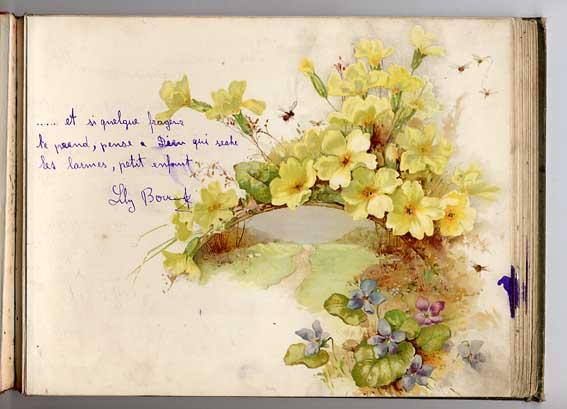 ..... et si quelque
te prend, pense a Dieu qui seche
les larmes, petit enfant.
Lily